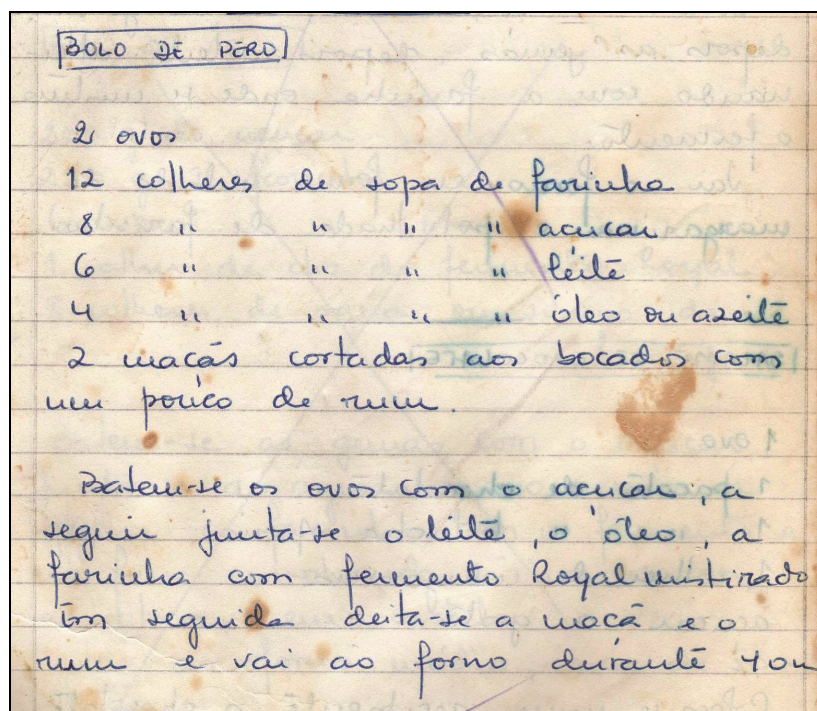 BOLO DE PERO
2 ovos
12 colheres de sopa de farinha
8 " " " " acucar
6 " " " " leite
4 " " " " óleo ou azeite
2 macãs cortadas aos bocados com
um pouco de rum.
Batem-se os ovos com o acucar, a
seguir junta-se o leite, o óleo, a
farinha com fermento Royal mistirado
Em seguida deita-se a macã e o
rum e vai ao forno durante 40m